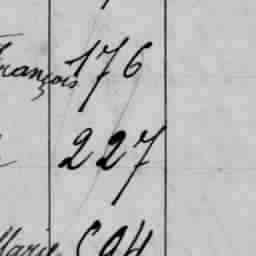 François 176
227
Marie 594